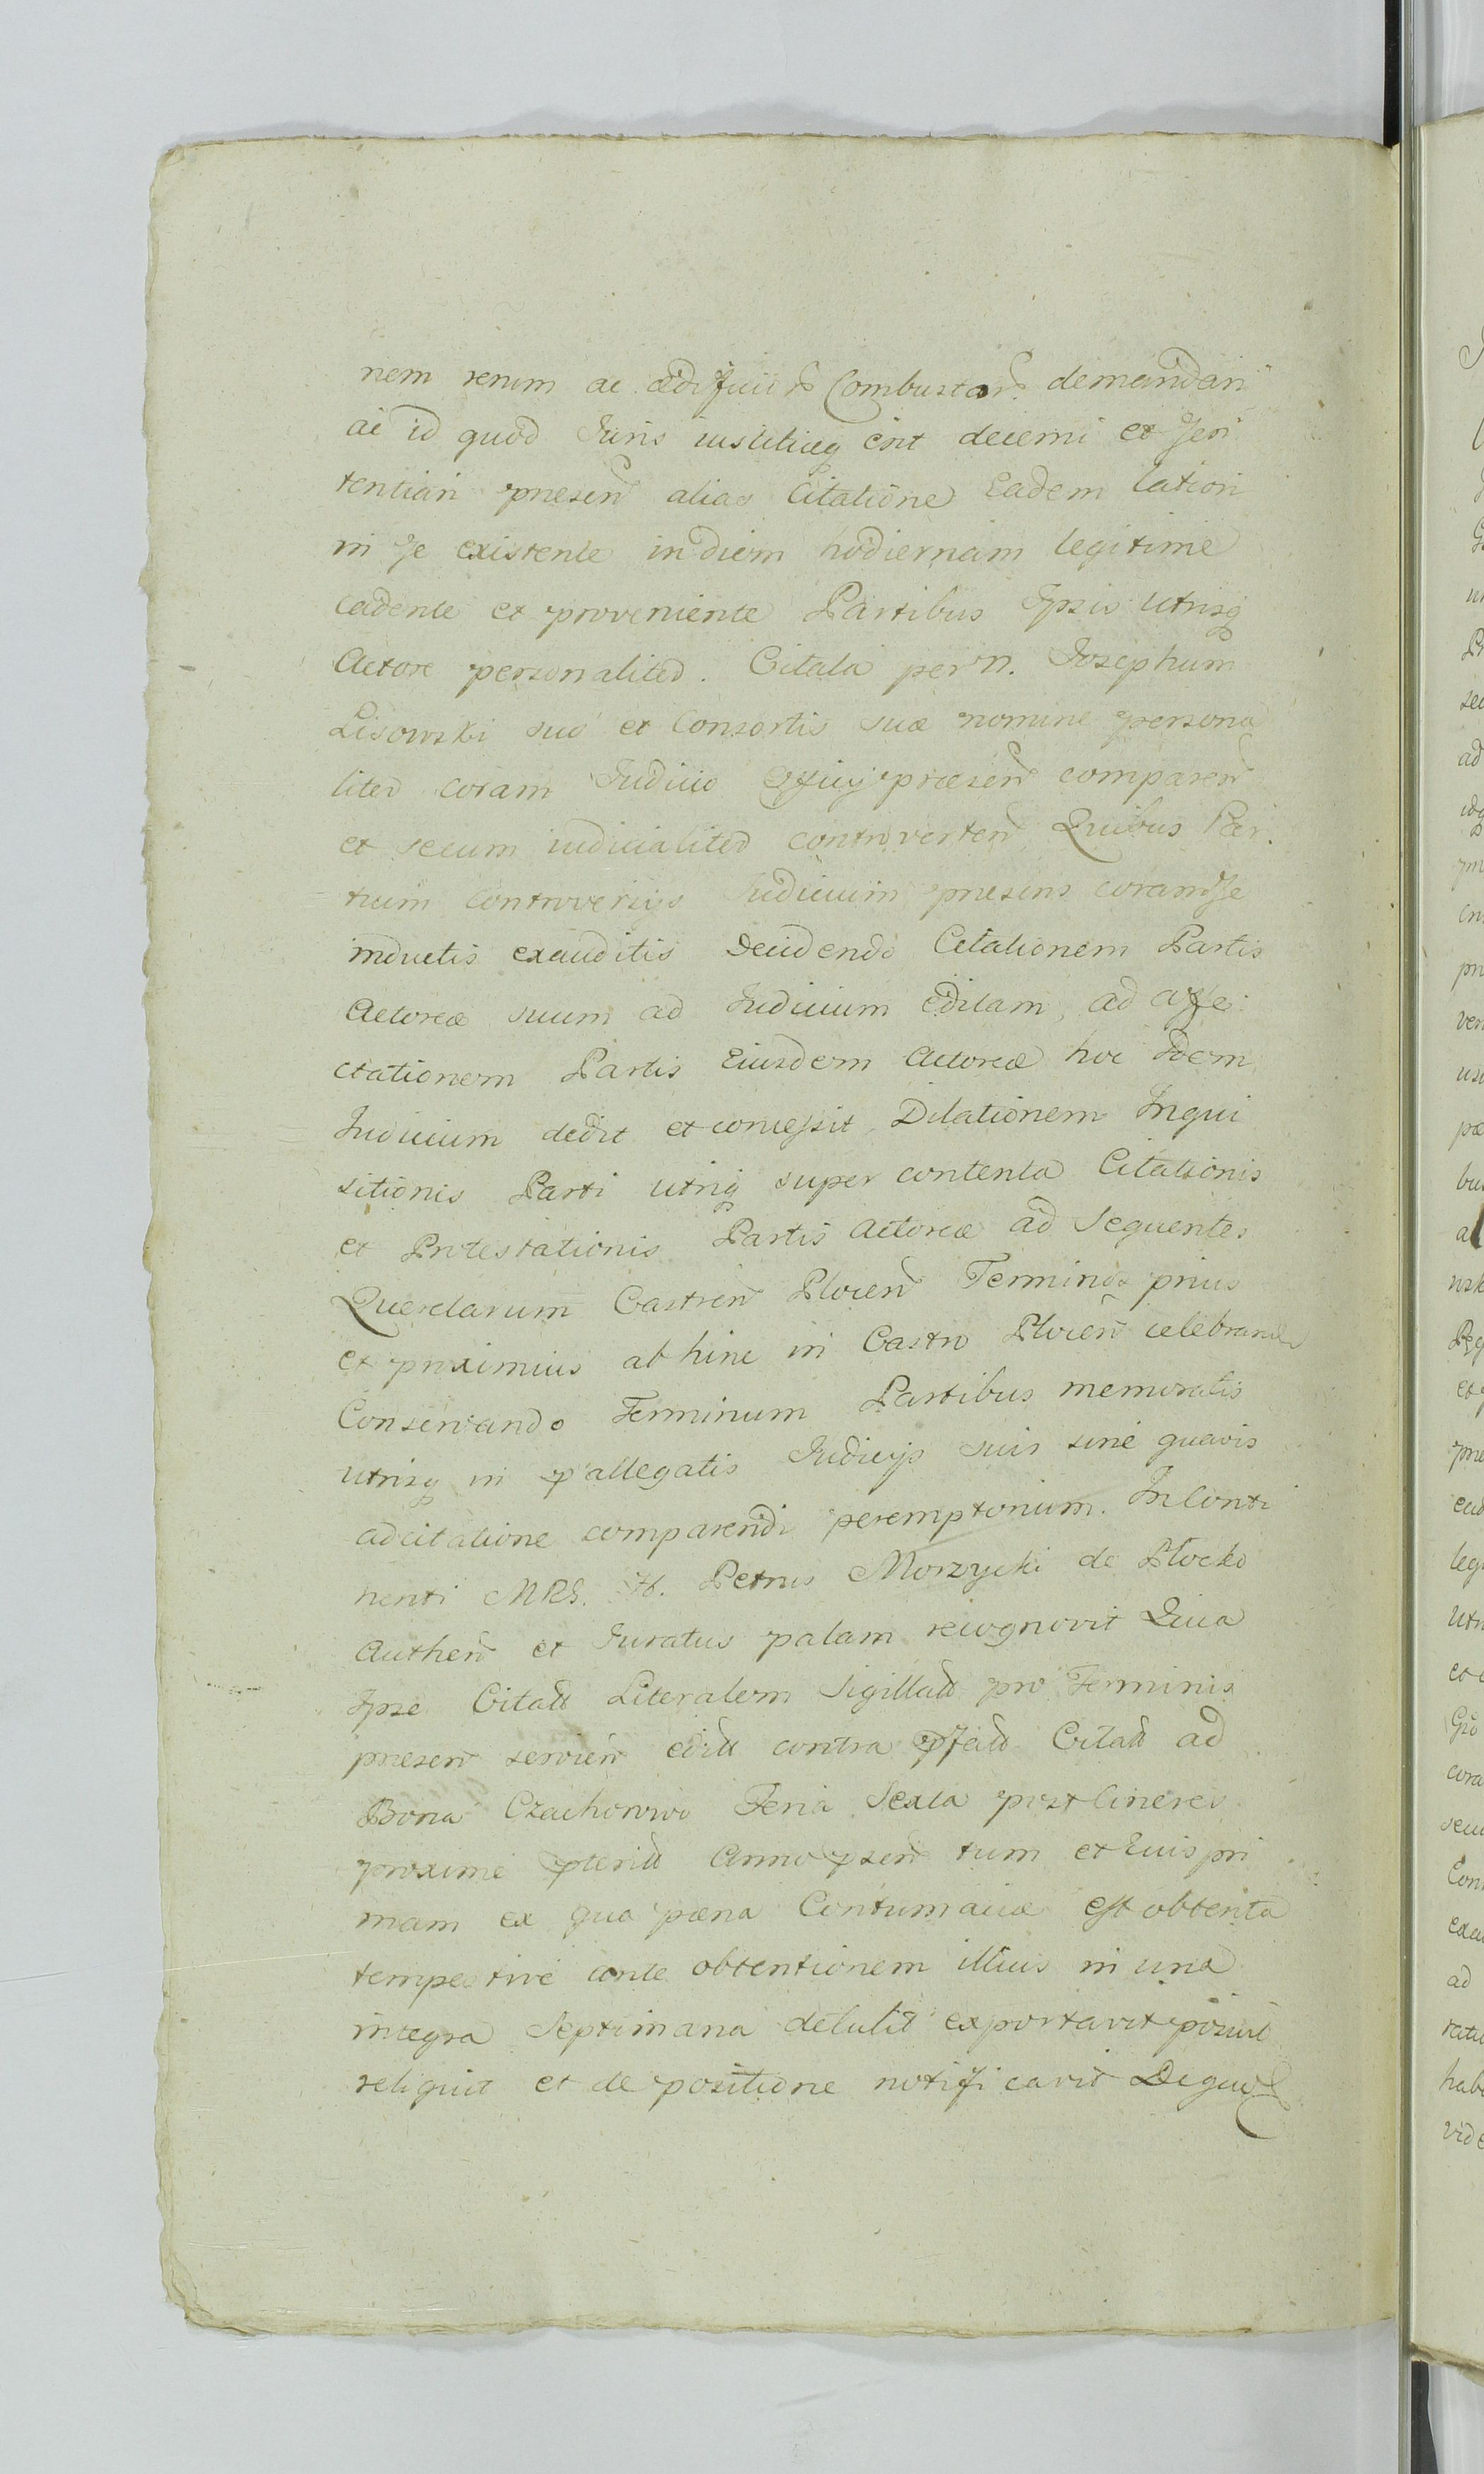 nem rerum ac ædificior Combustar. demandari
ac id quod Iuris iustitiæq erit decerni et Sen
tentiari presen alias Citatione Eadem lation
in se existente in diem hodiernam legitime
cadente et proveniente Partibus Ipsis Utrisq
Actore personaliter. Citata per n. Josephum
Lisowski suo et Consortis suæ nomine persona
liter coram Iudicio Officij præsen comparen
et secum iudicialiter controverten Quibus Par
tium Controversijs Iudicium presens coram se
inductis exauditis Decidendo Citationem Partis
Actoreæ suum ad Iudicium Editam, ad affe
ctationem Partis Eiusdem Actoreæ hoc Idem
Iudicium dedit et concessit Dilationem Inqui
sitionis Parti utriq super contenta Citationis
et Protestationis Partis Actoreæ ad Sequentes
Querelarum Castren Plocen Terminos prius
et proximius ab hinc in Castro Plocen celebrand
Conservando Terminum Partibus memoratis
utrisq in pallegatis Iudicijs suis sine quavis
adcitatione comparendi peremptorium. In Conti
nenti MRS. H. Petrus Morzycki de Płocko
Authen et Iuratus palam recognovit Quia
Ipse Citatt Literalem Sigillatt pro Terminis
presen servien editt contra pfatt Citatt ad
Bona Czachorowo Feria Sexta post Cineres
proxime pteritt Anno psen tum et Eius pri
mam ex qua pæna Contumaciæ est obtenta
tempestive ante obtentionem illius in una
integra Septimana detulit exportavit posuit
reliquit et de positione notificavit De quo